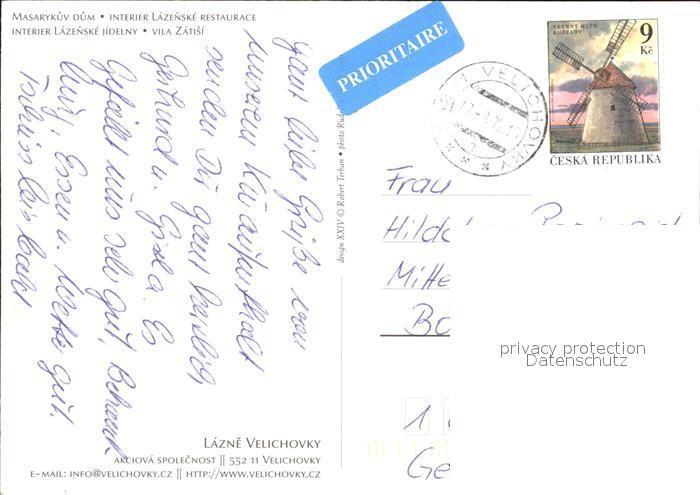 Masarykův dům • interier Lázeňské restaurace
interier Lázeňské jídelny • vila Zátiší
PRIORITAIRE
VĚTRNÝ MLÝN
KUŽELOV
9
Kč
ČESKÁ REPUBLIKA
1 VELICHOVKY
ganz liebe Grüße von
unserem Kuraufenthalt
senden Dir ganz herzlich
Gerhard u. Gisela. Es
gefällt uns sehr gut,
Umg, Essen u. Wetter gut.
Tschüss bis bald
design XXIV © Robert Terhan • photo
Frau
Hild
Mitte
Bo
1
Ge
privacy protection
Datenschutz
Lázně Velichovky
akciová společnost ][ 552 11 Velichovky
e-mail: info@velichovky.cz ][ http://www.velichovky.cz